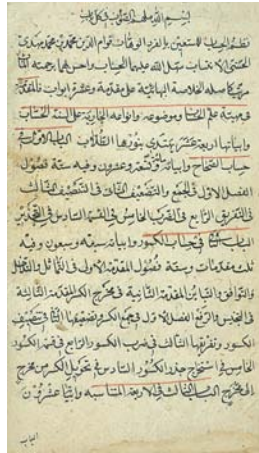 بسم الله الرحمن الرحيم
نظم الحساب للمستعين بالفرد الوهاب قوام الدين محمد بن محمد مهدي
الحسني سهل الله عليهما الحساب واحسن
الخلاصة البهائية على مقدمة وعشرة ابواب المقدمة
في علم الحساب وموضوعه وانواعه الجارية على السنة الحساب
وابياتها اربعة عشر يهتدي بنورها الطلاب الباب الاول في
حساب الصحاح وابياته وعشرون وفيه ستة فصول
الفصل الاول في الجمع والتضعيف الثاني في التنصيف الثالث
في التفريق الرابع في الضرب الخامس في القسمة السادس في التجذير
الباب في حساب الكسور وابياته سبعة وسبعون وفيه
ثلث مقدمات وستة فصول المقدمة الاولى في التماثل والتداخل
والتوافق والتباين المقدمة الثانية في مخرج الكسر المقدمة الثالثة
في التجنيس والرفع الفصل الاول في جمع الكسور وتضعيفها الثاني في تنصيف
الكسور وتفريقها الثالث في ضرب الكسور الرابع في قسمة الكسور
الخامس في استخراج جذر الكسور السادس في تحويل الكسر من مخرج
الى مخرج الباب الثالث في الاربعة المتناسبة وابياتها عشرون
الباب